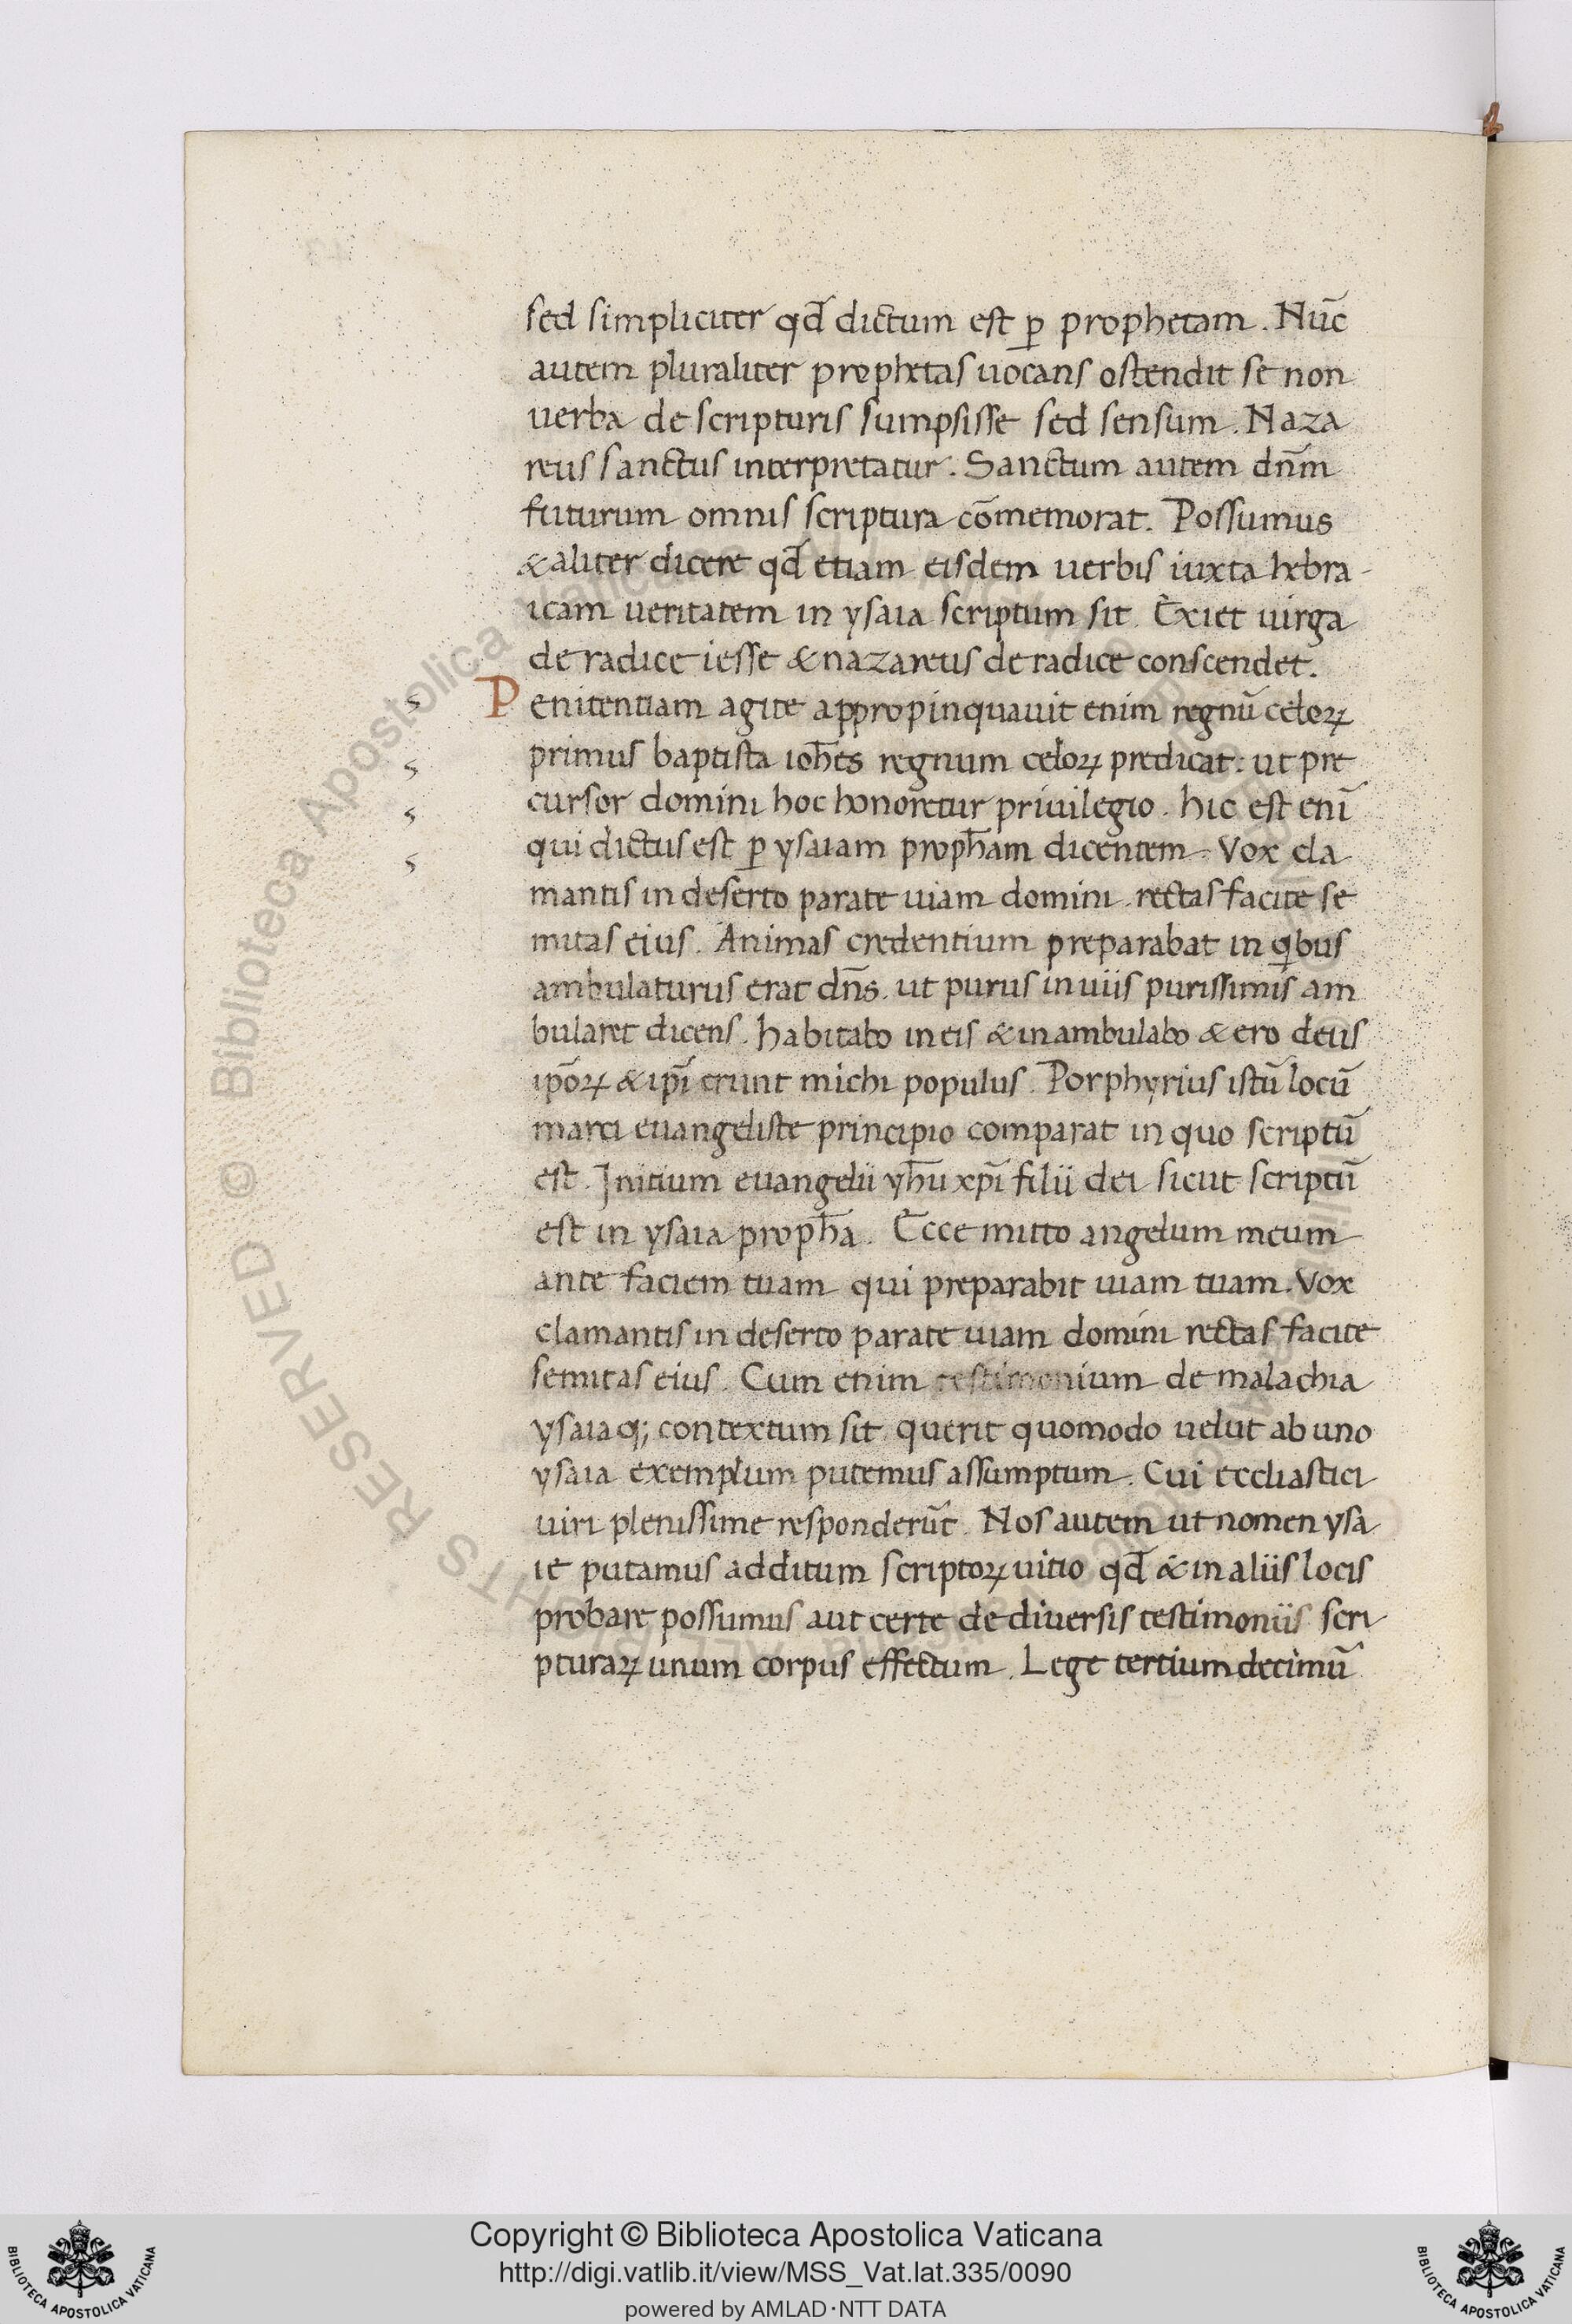 sed simpliciter qd̄ dictum est p̱ prophetam. Nūc
autem pluraliter prophetas uocans ostendit se non
uerba de scripturis sumpsisse sed sensum. Naza
reus sanctus interpretatur. Sanctum autem dn̄m
futurum omnis scriptura cōmemorat. Possumus
& aliter dicere qd̄ etiam eisdem uerbis iuxta hebra-
icam ueritatem in ysaia scriptum sit. Exiet uirga
de radice iesse & nazareus de radice conscendet.
Penitentiam agite appropinquauit enim regnū celoꝝ
primus baptista ioh̄es regnum celoꝝ predicat: ut pre
cursor domini hoc honoretur priuilegio. hic est enī
qui dictus est ꝑ ysaiam proph̄am dicentem. Vox cla
mantis in deserto parate uiam domini. rectas facite se
mitas eius. Animas credentium preparabat in qͥbus
ambulaturus erat dn̄s. ut purus in uiis purissimis am
bularet dicens. habitabo in eis & inambulabo & ero deus
ip̄oꝝ & ip̄i erunt michi populus. Porphyrius istū locū
marci euangeliste principio comparat in quo scriptū
est. Initium euangelii yh̄u xp̄i filii dei sicut scriptū
est in ysaia proph̄a. Ecce mitto angelum meum
ante faciem tuam qui preparabit uiam tuam. Vox
clamantis in deserto parate uiam domini rectas facite
semitas eius. Cum enim testimonium de malachia
ysaiaq; contextum sit. querit quomodo uelut ab uno
ysaia exemplum putemus assumptum. Cui eccliastici
uiri plenissime responderūt. Nos autem ut nomen ysa
ie putamus additum scriptoꝝ uitio qd̄ & in aliis locis
probare possumus aut certe de diuersis testimoniis scri
pturaꝝ unum corpus effectum. Lege tertiumdecimū
Copyright © Biblioteca Apostolica Vaticana
http://digi.vatlib.it/view/MSS_Vat.lat.335/0090
powered by AMLAD·NTT DATA